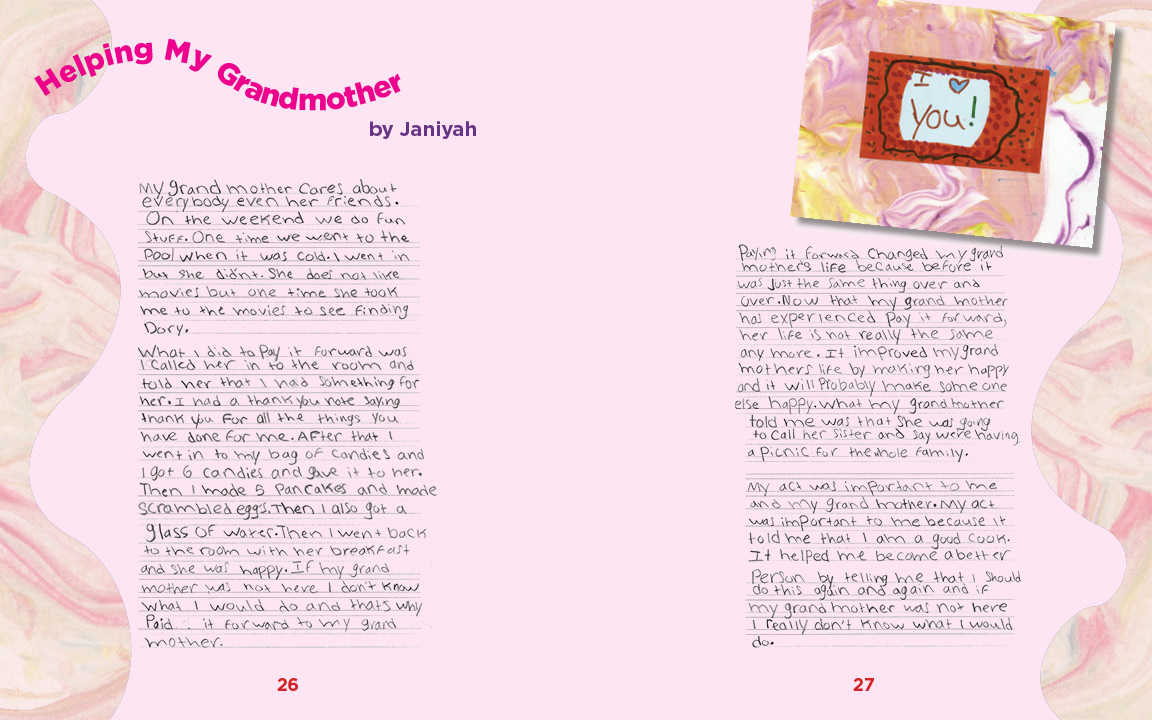 Helping My Grandmother
by Janiyah
My grand mother cares about
everybody even her friends.
On the weekend we do fun
Stuff. One time we went to the
Pool when it was cold. I went in
but she didn't. She does not like
movies but one time she took
me to the movies to see finding
Dory.
What I did to Pay it forward was
I called her in to the room and
told her that I had something for
her. I had a thank you note saying
thank you for all the things you
have done for me. After that I
went in to my bag of candies and
I got 6 candies and gave it to her.
Then I made 5 Pancakes and made
scrambled eggs. Then I also got a
glass of water. Then I went back
to the room with her breakfast
and she was happy. If my grand
mother was not here I don't know
what I would do and thats why
Paid it forward to my grand
mother.
26
I ♥
you!
Paying it forward changed my grand
mothers life because before it
was just the same thing over and
over. Now that my grand mother
has experienced Pay it forward,
her life is not really the same
any more. It improved my grand
mothers life by making her happy
and it will Probably make some one
else happy. what my grand mother
told me was that she was going
to call her sister and say were having
a picnic for the whole family.
My act was important to me
and my grand mother. My act
was important to me because it
told me that I am a good cook.
It helped me become a better
Person by telling me that I should
do this again and again and if
my grand mother was not here
I really don't know what I would
do.
27